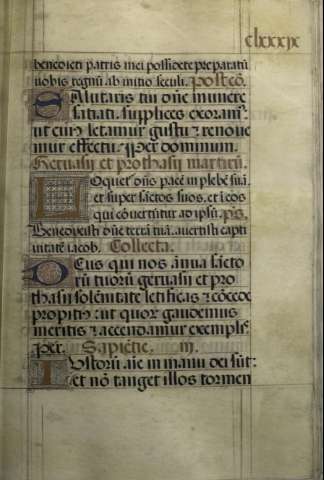 clxxxix
benedicti patris mei possidete preparatū
uobis regnū ab initio seculi. Postcō.
Salutaris tui dn̄e munere
satiati. supplices exoram᷒:
ut cuiꝰ letamur gustu ⁊ renoue
mur effectu. Per dominum.
Geruasij et prothasij martirū.
Loquet̄ dn̄s pacē in plebē suā.
et super sāctos suos. et ī eos
qui cōuertūtur ad ipsū. p̄s.
Benedixisti dn̄e terrā tuā. auertisti capti
uitatē iacob. Collecta.
Deus qui nos ānua sācto
rū tuorū geruasij et pro
thasij solēnitate letificas ⁊ cōcede
propitiꝰ: ut quor̄ gaudemus
meritis ⁊ accendamur exemplis.
Per. Sapiētie. iij.
Iustorū aīe in manu dei sūt:
et nō tanget illos tormen